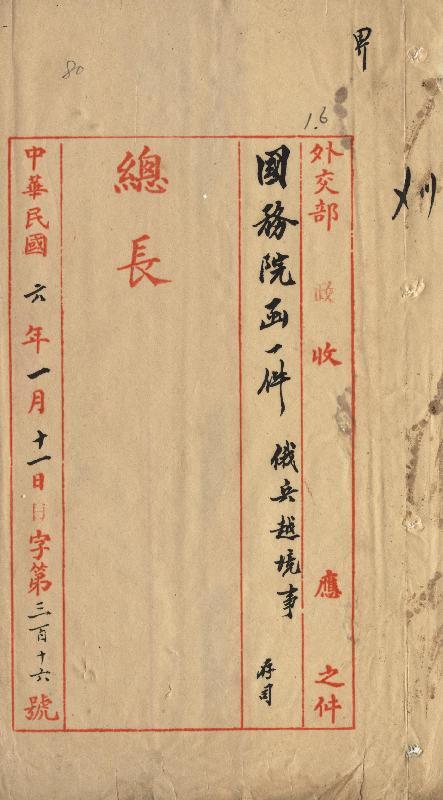 界
80
1.6
外交部 政 收 應 之件
國務院函一件 俄兵越境事 存司
總長
中華民國六年一月十一日 日字第三百十六號